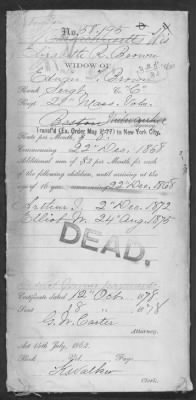 No. 58195
Elizabeth R. Brown
WIDOW OF
Edwin Brown
Rank Sergt. Co. "C"
Regt. 21st Mass. Vols.
Boston
Transf'd (Ex. Order May 7, '77) to New York City.
Rate per Month $
Commencing 22d Dec. 1868
Additional sum of $2 per Month for each
of the following children, until arriving at the
age of 16 years, commencing 22d Dec. 1868
Arthur J. 2d Dec. 1872
Elliot M. 24 Aug. 1875
DEAD.
Certificate dated 12th Oct. 78
Sent 18 " 78
G. W. Carter
Attorney.
Act 14th July, 1862.
Book Vol. Page
Walker
Clerk.